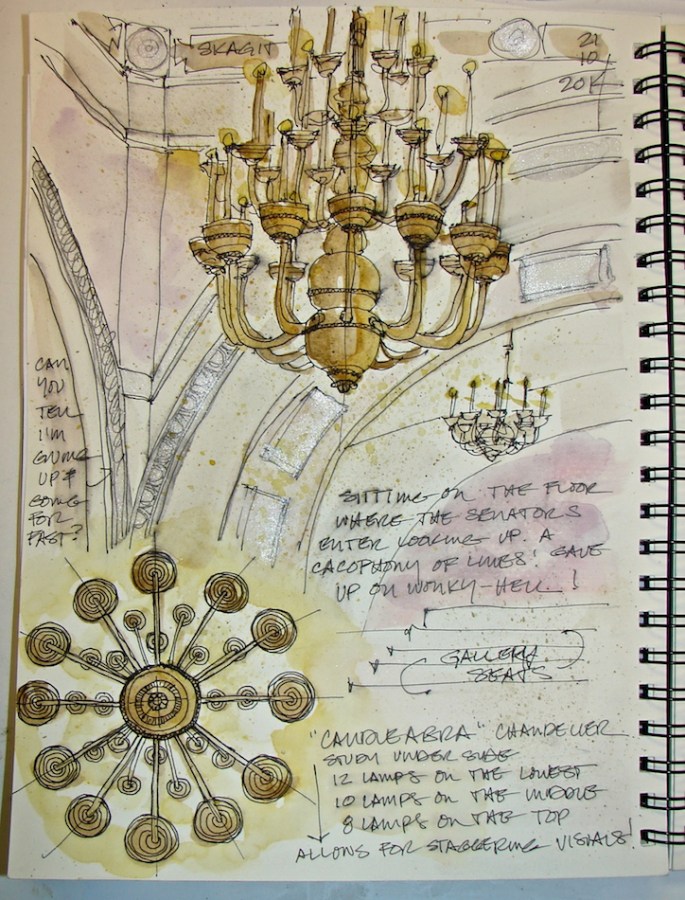 SKAGIT
21
10
20K
CAN
YOU
TELL
I'M
GIVING
UP &
GOING
FOR
FAST?
SITTING ON THE FLOOR
WHERE THE SENATORS
ENTER LOOKING UP. A
CACOPHONY OF LINES! GAVE
UP ON WONKY-HELL!
GALLERY
SEATS
"CANDLEABRA" CHANDELIER
STUDY UNDER SIDE
12 LAMPS ON THE LOWEST
10 LAMPS ON THE MIDDLE
8 LAMPS ON THE TOP
ALLOWS FOR STAGGERING VISUALS!